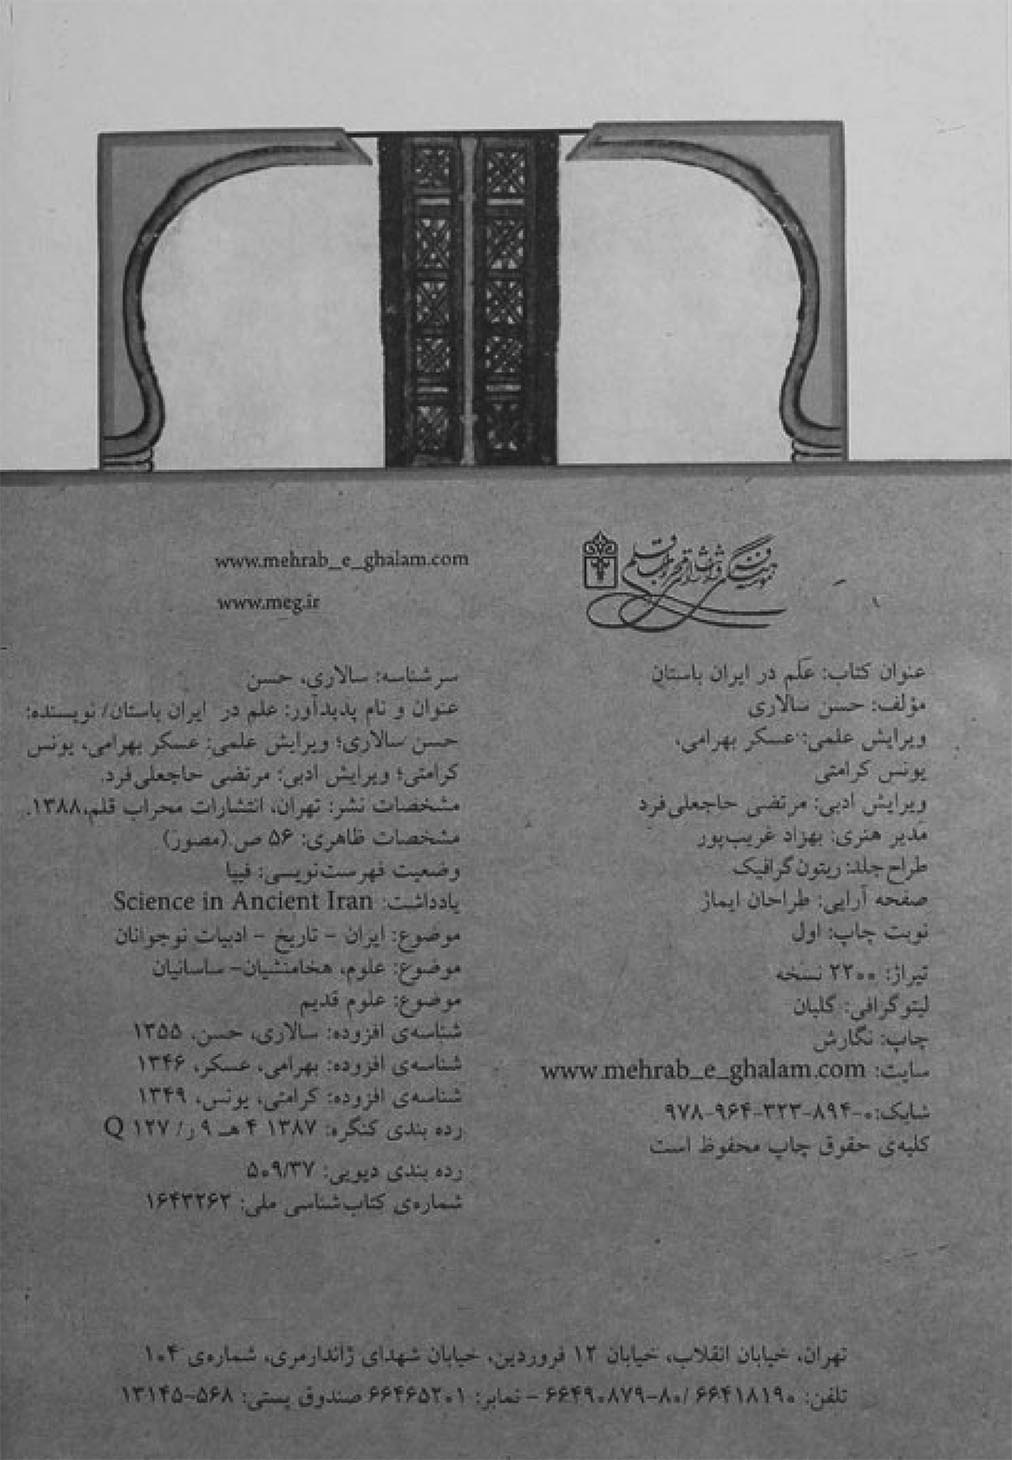 موسسه فرهنگی و آموزشی انتشاراتی محراب قلم
www.mehrab_e_ghalam.com
www.meg.ir
عنوان کتاب: علم در ایران باستان
مؤلف: حسن سالاری
ویرایش علمی: عسکر بهرامی،
یونس کرامتی
ویرایش ادبی: مرتضی حاجعلی‌فرد
مدیر هنری: بهزاد غریب‌پور
طراح جلد: ریتون گرافیک
صفحه آرایی: طراحان ایماژ
نوبت چاپ: اول
تیراژ: ۲۲۰۰ نسخه
لیتوگرافی: گلپان
چاپ: نگارش
سایت: www.mehrab_e_ghalam.com
شابک: ۰-۸۹۴-۳۲۳-۹۶۴-۹۷۸
کلیه‌ی حقوق چاپ محفوظ است
سرشناسه: سالاری، حسن
عنوان و نام پدیدآور: علم در ایران باستان/ نویسنده:
حسن سالاری؛ ویرایش علمی: عسکر بهرامی، یونس
کرامتی؛ ویرایش ادبی: مرتضی حاجعلی‌فرد.
مشخصات نشر: تهران، انتشارات محراب قلم،۱۳۸۸.
مشخصات ظاهری: ۵۶ ص.(مصور)
وضعیت فهرست‌نویسی: فیپا
یادداشت: Science in Ancient Iran
موضوع: ایران - تاریخ - ادبیات نوجوانان
موضوع: علوم، هخامنشیان- ساسانیان
موضوع: علوم قدیم
شناسه‌ی افزوده: سالاری، حسن، ۱۳۵۵
شناسه‌ی افزوده: بهرامی، عسکر، ۱۳۴۶
شناسه‌ی افزوده: کرامتی، یونس، ۱۳۴۹
رده بندی کنگره: ۱۳۸۷ ۴ هـ ۹ ر/ ۱۲۷ Q
رده بندی دیویی: ۵۰۹/۳۷
شماره‌ی کتاب‌شناسی ملی: ۱۶۴۳۲۶۲
تهران، خیابان انقلاب، خیابان ۱۲ فروردین، خیابان شهدای ژاندارمری، شماره‌ی ۱۰۴
تلفن: ۶۶۴۱۸۱۹۰ /۸۰-۶۶۴۹۰۸۷۹ - نمابر: ۶۶۴۶۵۲۰۱ صندوق پستی: ۵۶۸-۱۳۱۴۵